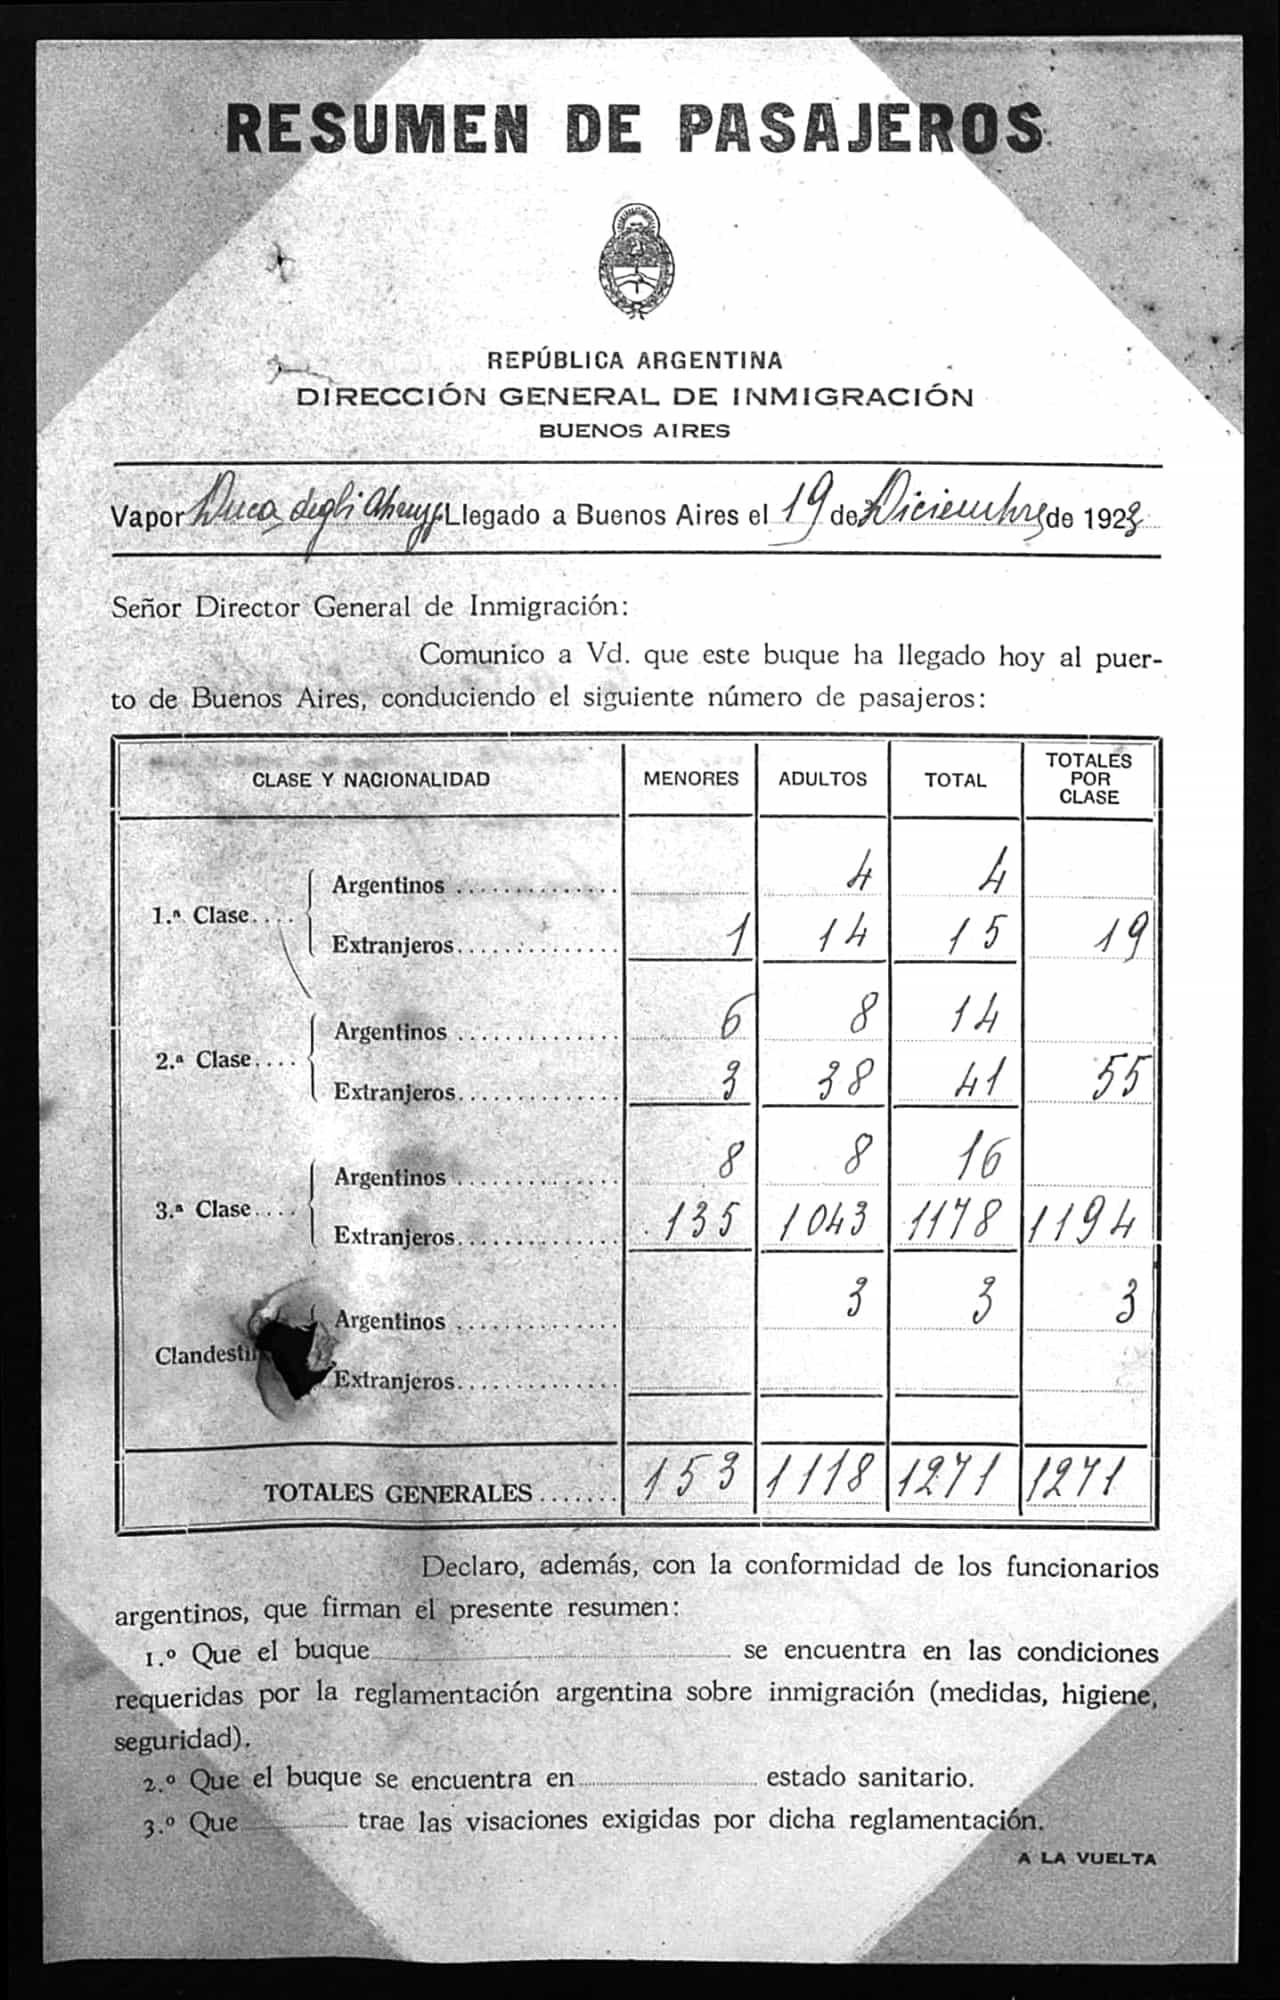 RESUMEN DE PASAJEROS
REPÚBLICA ARGENTINA
DIRECCIÓN GENERAL DE INMIGRACIÓN
BUENOS AIRES
Vapor Duca degli Abruzzi Llegado a Buenos Aires el 19 de Diciembre de 1923
Señor Director General de Inmigración:
Comunico a Vd. que este buque ha llegado hoy al puer-
to de Buenos Aires, conduciendo el siguiente número de pasajeros:
CLASE Y NACIONALIDAD MENORES ADULTOS TOTAL TOTALES POR CLASE
1.ª Clase.... Argentinos .............. 4 4
Extranjeros.............. 1 14 15 19
2.ª Clase.... Argentinos .............. 6 8 14
Extranjeros.............. 3 38 41 55
3.ª Clase.... Argentinos .............. 8 8 16
Extranjeros.............. 135 1043 1178 1194
Clandesti Argentinos .............. 3 3 3
Extranjeros..............
TOTALES GENERALES ....... 153 1118 1271 1271
Declaro, además, con la conformidad de los funcionarios
argentinos, que firman el presente resumen:
1.º Que el buque se encuentra en las condiciones
requeridas por la reglamentación argentina sobre inmigración (medidas, higiene,
seguridad).
2.º Que el buque se encuentra en estado sanitario.
3.º Que trae las visaciones exigidas por dicha reglamentación.
A LA VUELTA